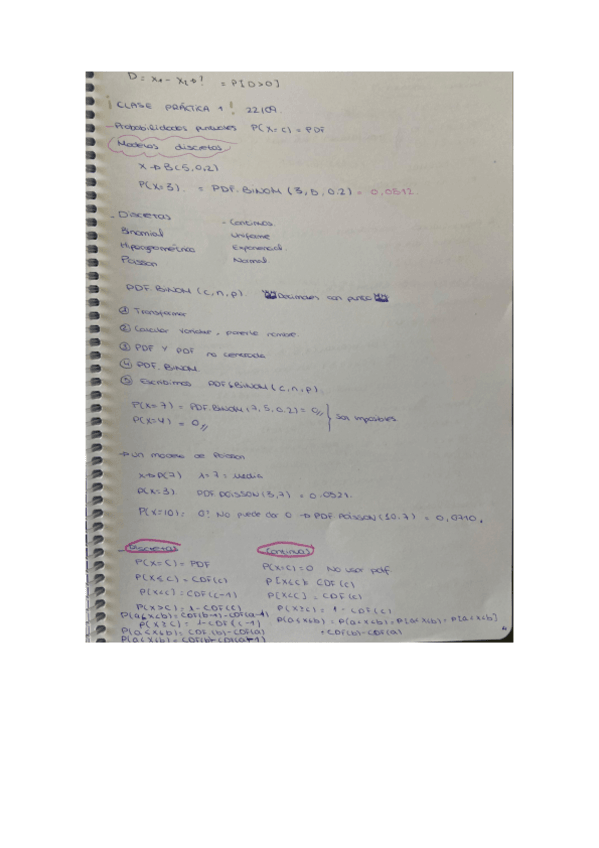 D = x₁ - x₂ → ? = P[D>0]
¡CLASE PRÁCTICA 1! 22/09.
- Probabilidades puntuales P(X=c) = PDF
Modelos discretos
X → B(5,0.2)
P(X=3). = PDF.BINOM (3,5,0.2) = 0,0512
- Discretas - Continuas
Binomial Uniforme
Hipergeométrica Exponencial
Poisson Normal
PDF.BINOM (c,n,p). Decimales con punto
① Transformar
② Calcular variable, ponerle nombre.
③ PDF Y PDF no centrada
④ PDF.BINOM.
⑤ Escribimos PDF.BINOM (c,n,p).
P(X=7) = PDF.BINOM (7,5,0.2) = 0,, Son imposibles
P(X=4) = 0,,
→ Un modelo de Poisson
X→P(7) λ=7 = Media
P(X=3). PDF.POISSON (3,7) = 0.0521.
P(X=10): 0? No puede dar 0 → PDF.POISSON (10.7) = 0,0710.
- Discretas Continuas
P(X=C) = PDF P(X=C)=0 No usar pdf
P(X≤C) = CDF(C) P[X≤C] = CDF(C)
P(X<C) = CDF(C-1) P[X<C] = CDF(C)
P(X>C) = 1-CDF(C) P(X≥C) = 1 - CDF(C)
P(a≤X<b) = CDF(b-1)-CDF(a-1)
P(X≥C) = 1-CDF(C-1) P(a<X<b) = P(a<X≤b) = P[a≤X<b] = P[a≤X≤b]
P(a<X≤b) = CDF(b)-CDF(a) = CDF(b)-CDF(a)
P(a≤X≤b) = CDF(b)-CDF(a-1)